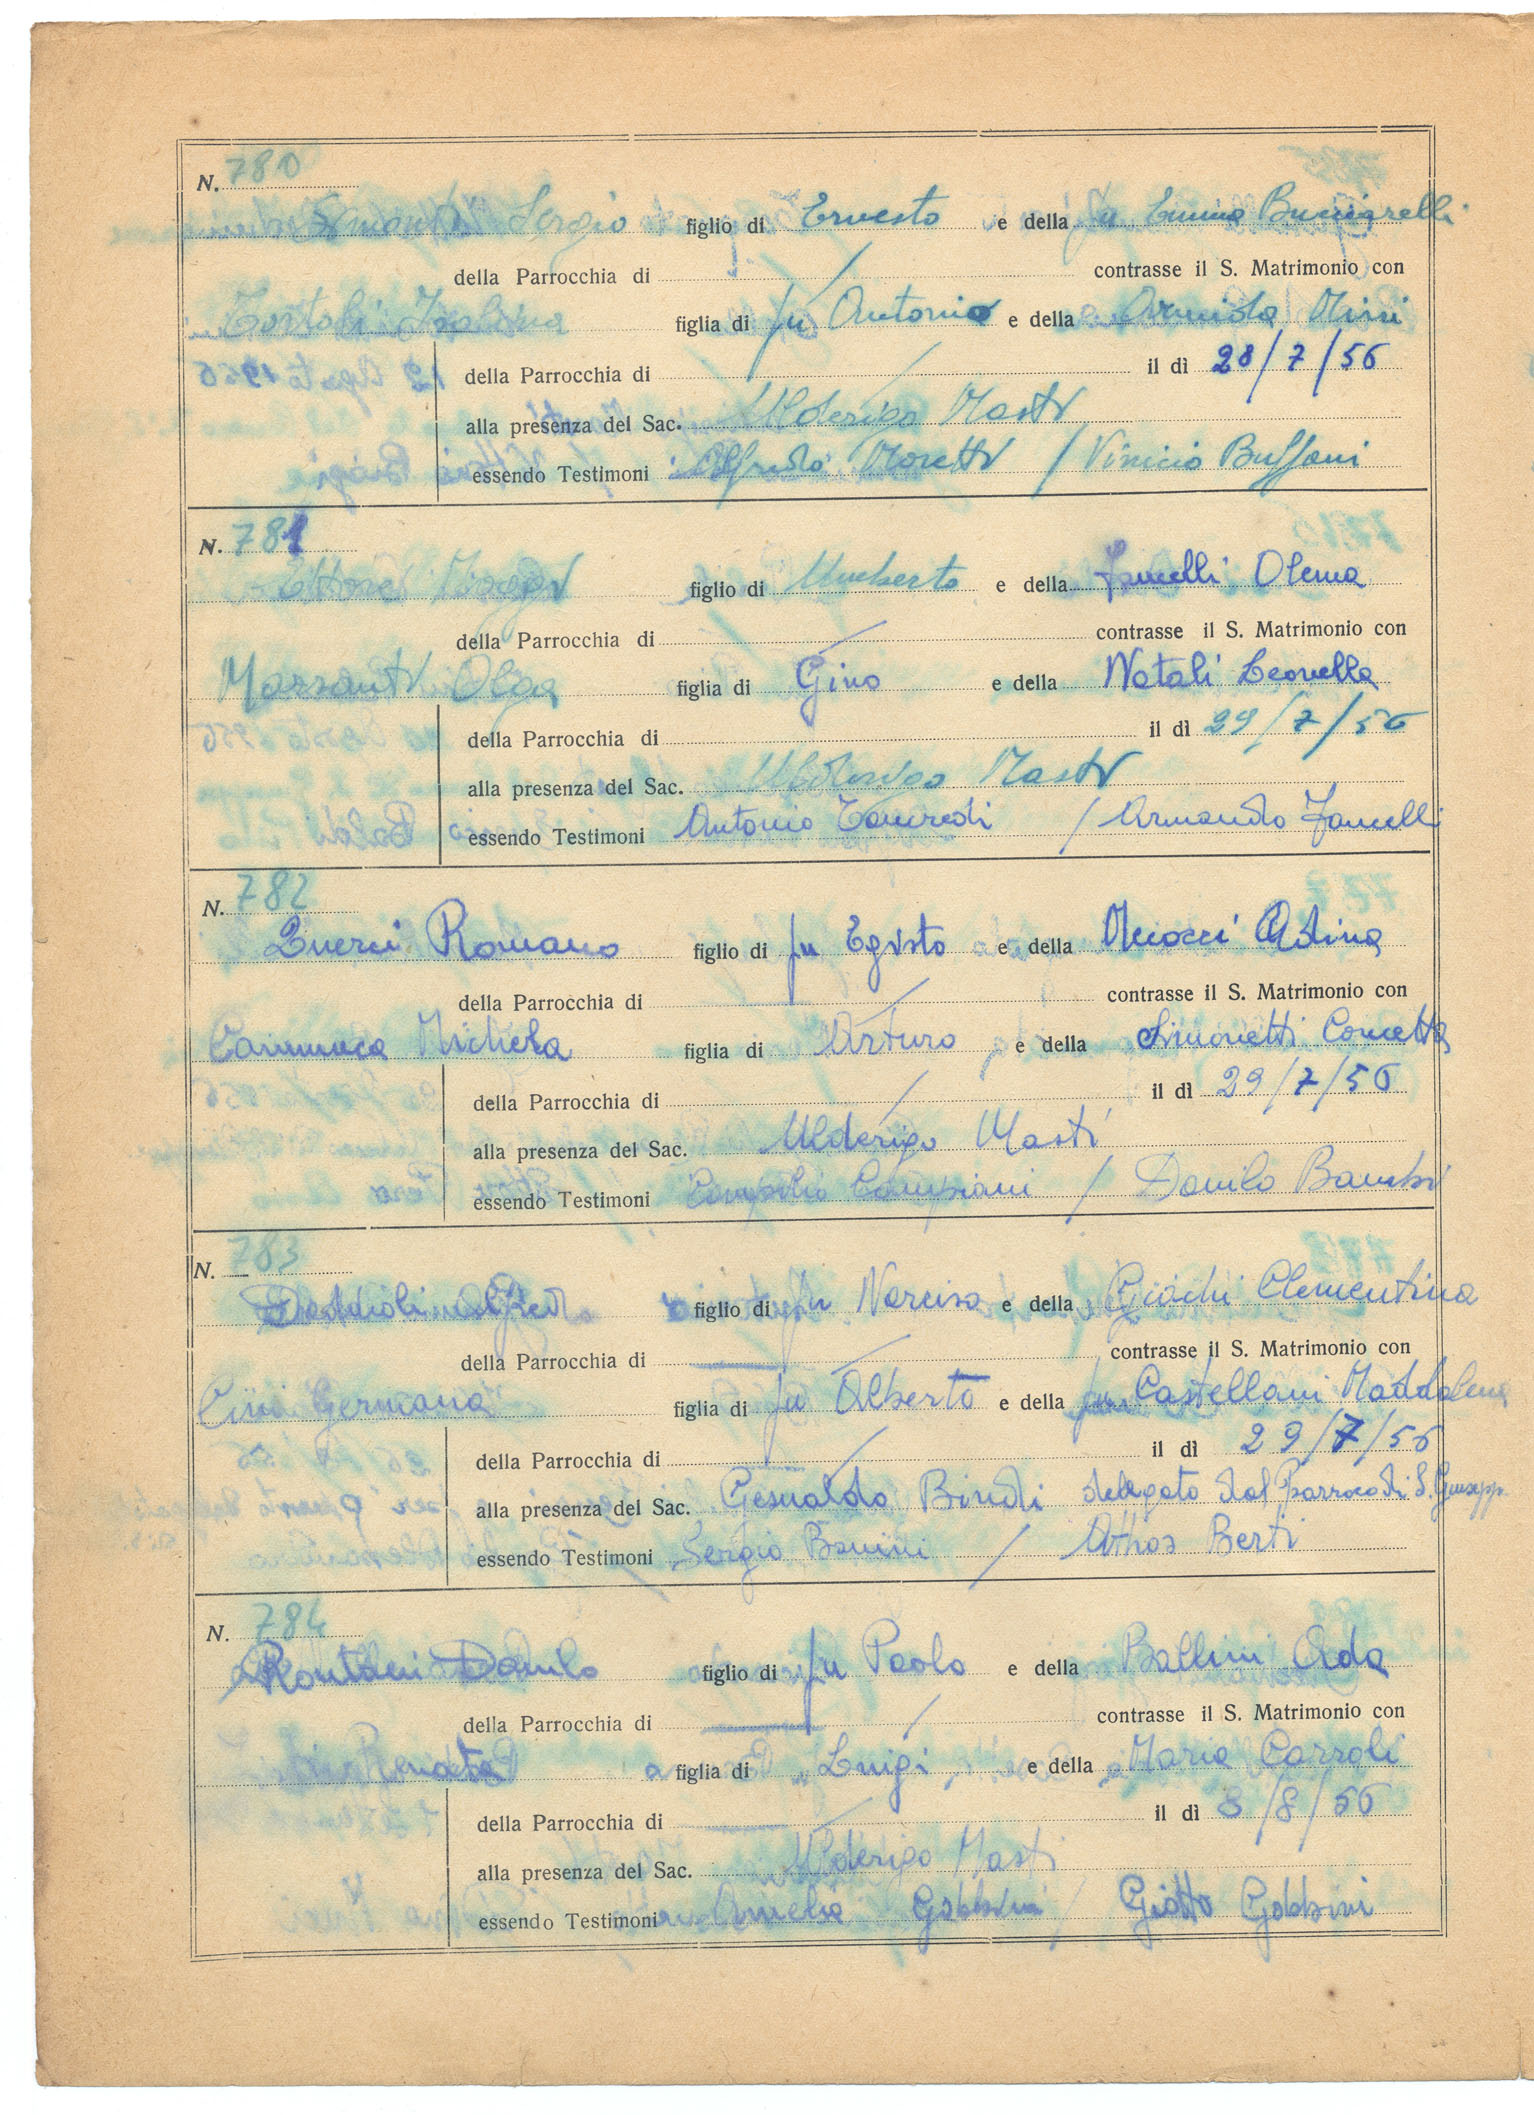 N. 780
Sergio figlio di Ernesto e della fu Emma Bucciarelli
della Parrocchia di / contrasse il S. Matrimonio con
Bortoli Isolina figlia di fu Antonio e della Armida Nisi
della Parrocchia di / il dì 28/7/56
alla presenza del Sac. Ulderigo Masti
essendo Testimoni Alfredo Moretti / Vinicio Buffoni
N. 781
Ettore figlio di Umberto e della Fancelli Olema
della Parrocchia di / contrasse il S. Matrimonio con
Marsanti Olga figlia di Gino e della Natali Leonella
della Parrocchia di il dì 29/7/56
alla presenza del Sac. Ulderigo Masti
essendo Testimoni Antonio Tancredi / Armando Fancelli
N. 782
Querci Romano figlio di fu Egisto e della Meocci Adina
della Parrocchia di / contrasse il S. Matrimonio con
Michela figlia di Arturo e della Simonetti Concetta
della Parrocchia di / il dì 29/7/56
alla presenza del Sac. Ulderigo Masti
essendo Testimoni Compilio Campiani / Danilo Bambi
N. 783
figlio di fu Narciso e della Giachi Clementina
della Parrocchia di / contrasse il S. Matrimonio con
Cini Germana figlia di fu Alberto e della fu Castellani Maddalena
della Parrocchia di / il dì 29/7/56
alla presenza del Sac. Gesualdo Bindi delegato dal Parroco di S. Giusepp.
essendo Testimoni Sergio Banini / Athos Berti
N. 784
Rontani Danilo figlio di fu Paolo e della Ballini Ada
della Parrocchia di / contrasse il S. Matrimonio con
Renata figlia di Luigi e della Maria Carrali
della Parrocchia di / il dì 8/8/56
alla presenza del Sac. Ulderigo Masti
essendo Testimoni Amelio Gabbini / Giotto Gabbini